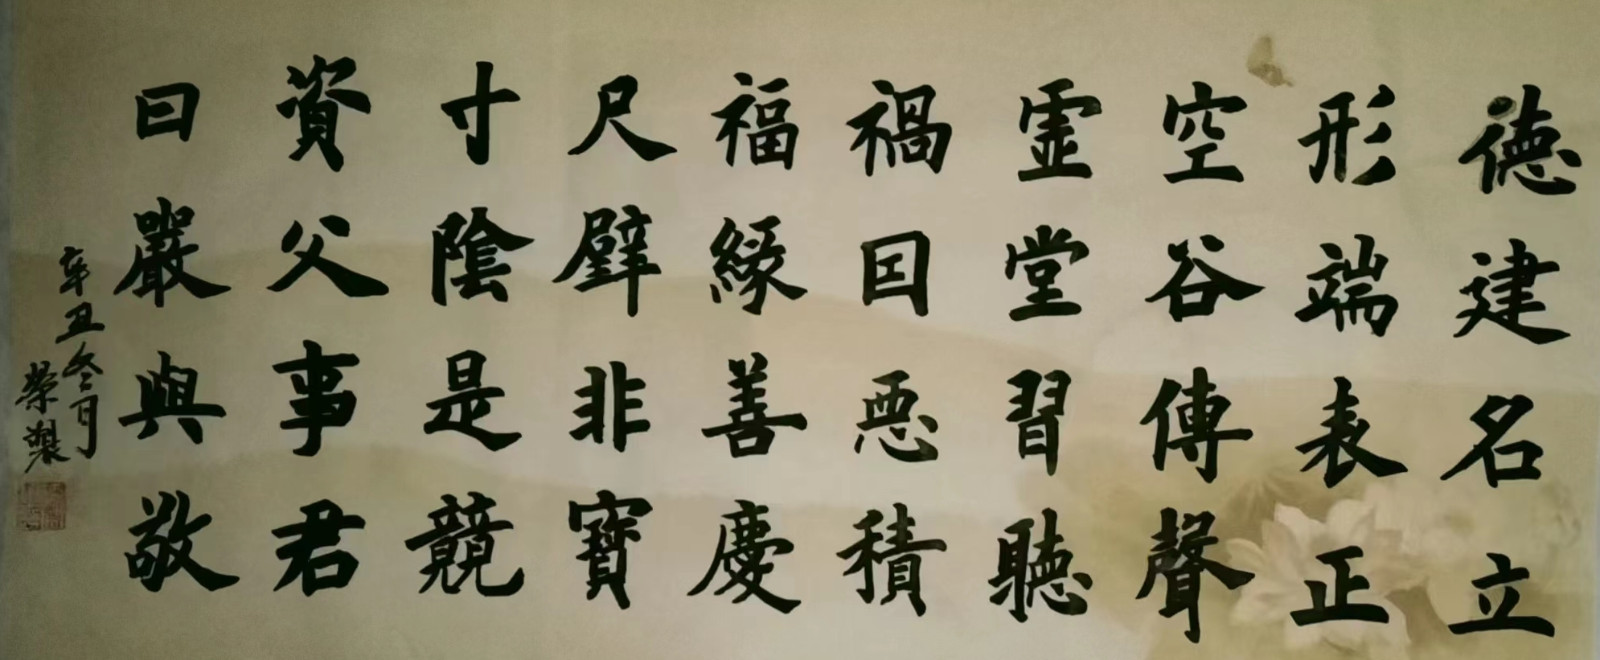 徳建名立
形端表正
空谷傳聲
霊堂習聽
禍囙悪積
福緣善慶
尺璧非寶
寸陰是競
資父事君
曰嚴與敬
辛丑冬月
榮製